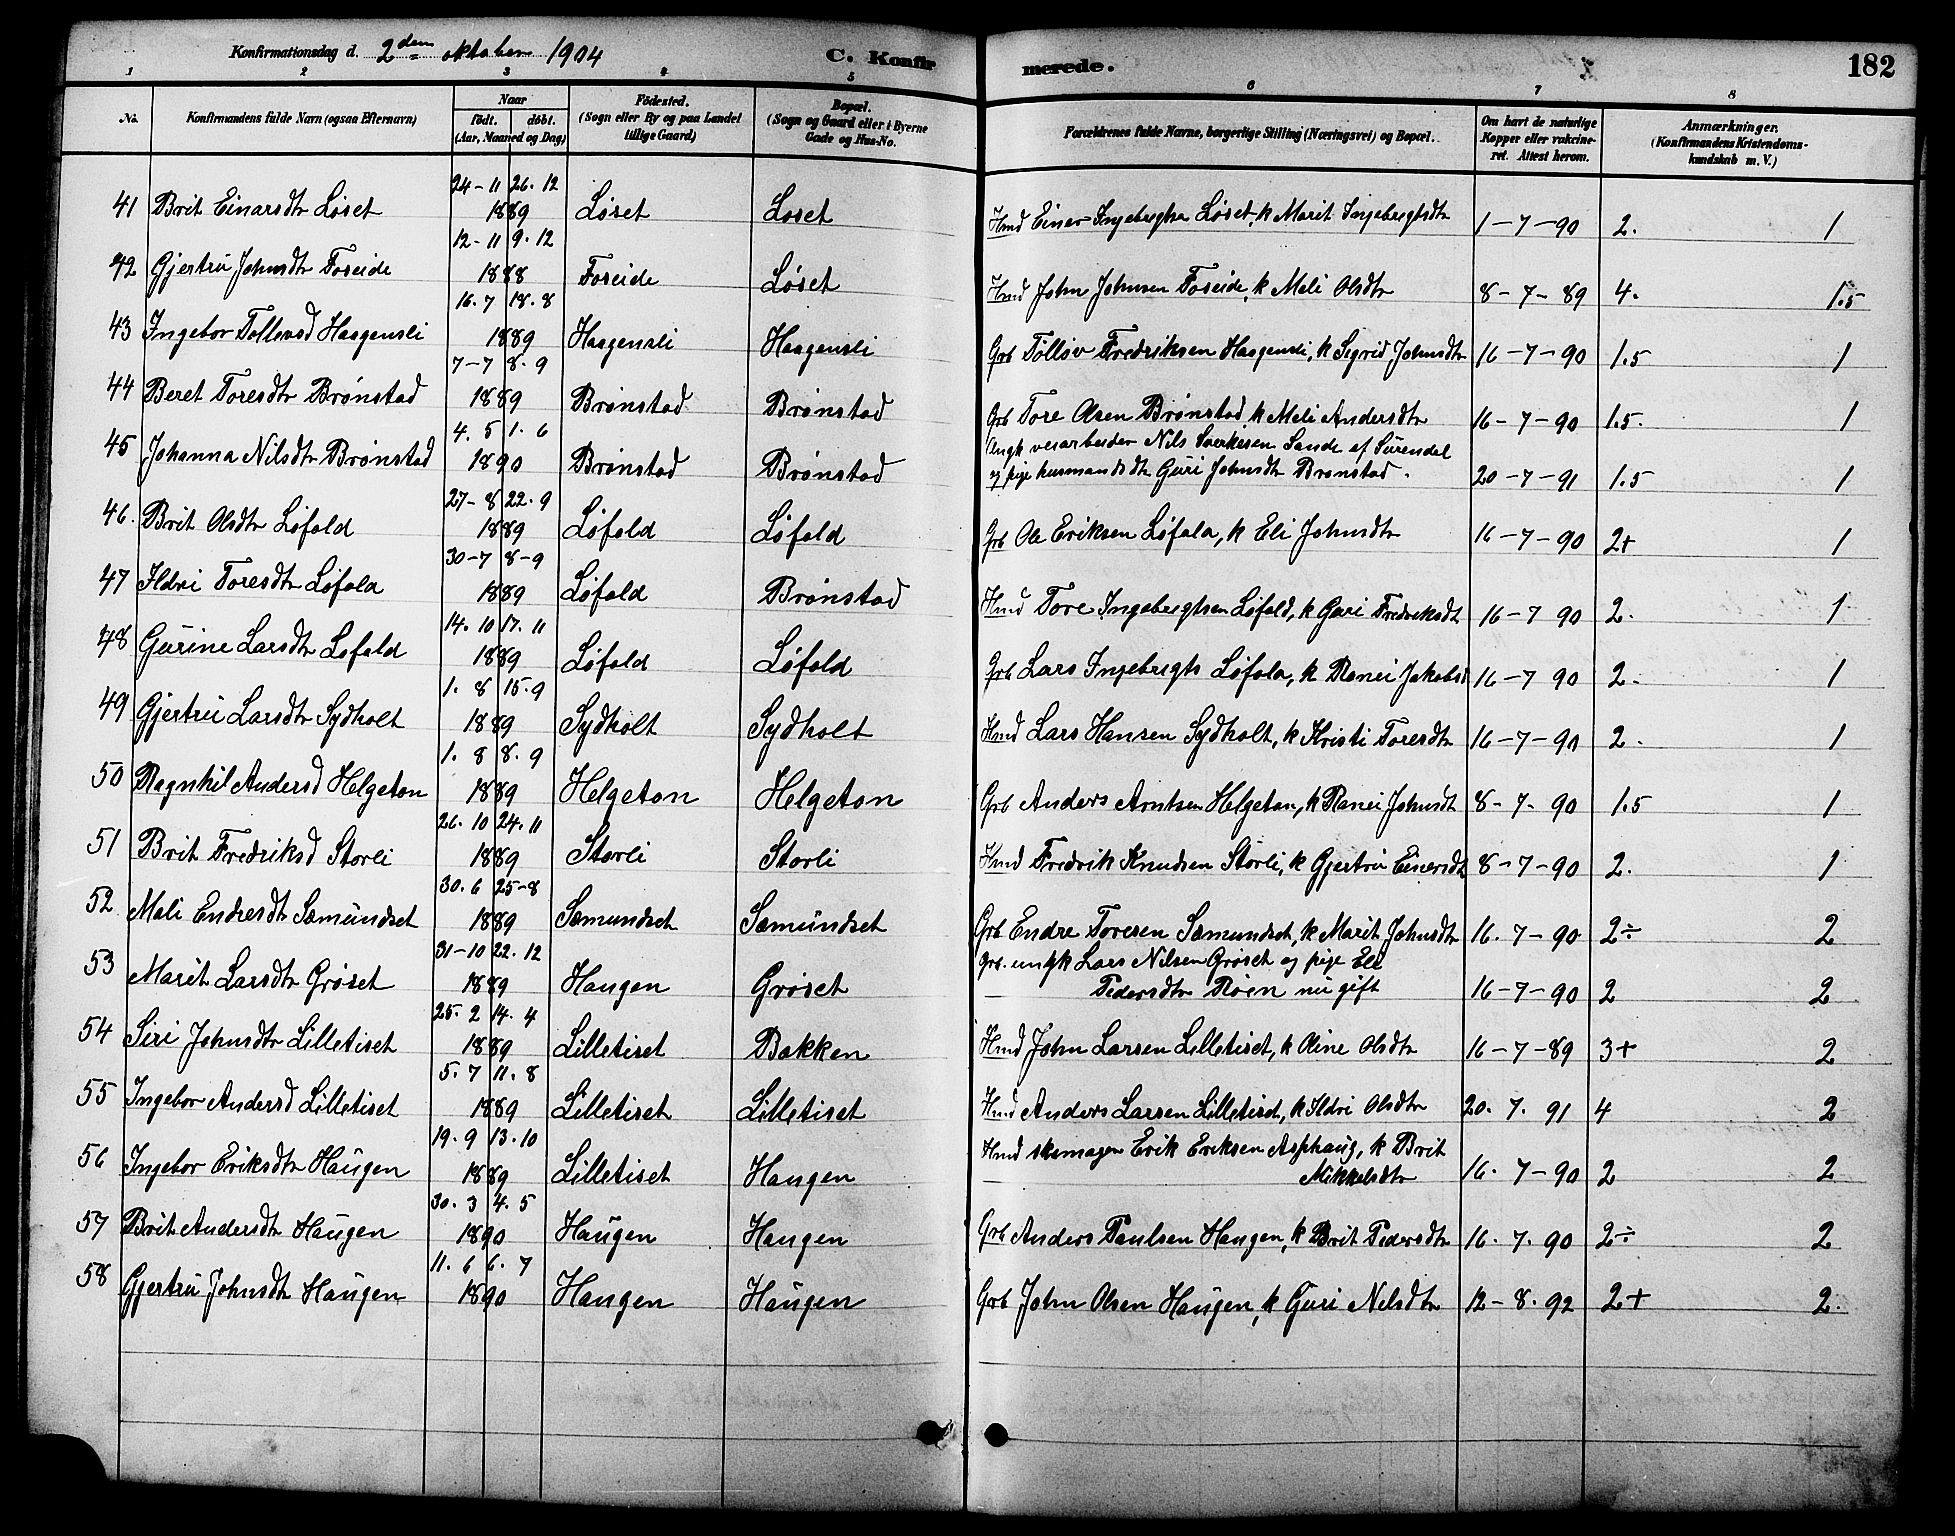 Konfirmationsdag d. 2den oktober 1904 C. Konfirmerede. 182
1 2 3 4 5 6 7 8
No. Konfirmandens fulde Navn (ogsaa Efternavn) Naar født. døbt. (Aar, Maaned og Dag) Fødested. (Sogn eller By og paa Landet tillige Gaard) Bopæl. (Sogn og Gaard eller i Byerne Gade og Hus-No. Forældrenes fulde Navne, borgerlige Stilling (Næringsvei) og Bopæl. Om havt de naturlige Kopper eller vakcineret. Attest herom. Anmærkninger. (Konfirmandens Kristendomskundskab m. V.)
24-11 26.12
41 Brit Einarsdtr Løset 1889 Løset Løset Hmd Einar Ingebrigtsen Løset, k Marit Ingebrigtsdtr 1-7-90 2. 1
12-11 9.12
42 Gjertru Johnsdtr Foseide 1888 Foseide Løset Hmd John Johnsen Foseide, k Mali Olsdtr 8-7-89 4. 1.5
16.7 18.8
43 Ingebor Tollevsd Haagensli 1889 Haagensli Haagensli Grb Tølløv Fredriksen Haagensli, k Sigrid Johnsdtr 16-7-90 1.5 1
7-7 8.9
44 Beret Toresdtr Brønstad 1889 Brønstad Brønstad Grb Tore Olsen Brønstad, k Mali Andersdtr 16-7-90 1.5. 1
4.5 1.6
45 Johanna Nilsdtr Brønstad 1890 Brønstad Brønstad Ungk veiarbeider Nils Sverkesen Sande af Surendal
og pige husmandsdtr Guri Johnsdtr Brønstad. 20-7-91 1.5 1
27-8 22.9
46. Brit Olsdtr Løfald 1889 Løfald Løfald Grb Ole Eriksen Løfald, k Eli Johnsdtr 16-7-90 2+ 1
30-7 8-9
47 Ildri Toresdtr Løfald 1889 Løfald Brønstad Hmd Tore Ingebrigtsen Løfald, k Guri Fredriksdt 16-7 90 2. 1
14.10 17.11
48 Gurine Larsdtr Løfald 1889 Løfald Løfald Grb Lars Ingebrigts Løfald, k Ranei Jakobsd 16-7 90 2. 1
1.8 15.9
49 Gjertru Larsdtr Sydholt 1889 Sydholt Sydholt Hmd Lars Hansen Sydholt, k Kristi Toresdtr 16-7-90 2. 1
1.8 8.9
50 Ragnhil Andersd Helgeton 1889 Helgeton Helgeton Grb Anders Arntsen Helgeton, k Ranei Johnsdt 8-7.90 1.5 1
26.10 24.11
51 Brit Fredriksd Storli 1889 Storli Storli Hmd Fredrik Knudsen Storli, k Gjertru Einersdt 8-7-90 2. 1
30.6 25-8
52 Mali Endresdtr Sæmundset 1889 Sæmundset Sæmundset Grb Endre Toresen Sæmundset, k Marit Johnsdtr 16.7-90 2÷ 2
31-10 22.12
53 Marit Larsdtr Grøset 1889 Haugen Grøset Grb. ungk Lars Nilsen Grøset og pige Eli
Pedersdtr Røen nu gift 16-7-90 2 2
25.2 14.4
54 Siri Johnsdtr Lilletiset 1889 Lilletiset Bakken Hmd John Larsen Lilletiset, k Oline Olsdtr 16-7-89 3+ 2
5.7 11.8
55 Ingebor Andersd Lilletiset 1889 Lilletiset Lilletiset Hmd Anders Larsen Lilletiset, k Ildri Olsdtr 20.7.91 4 2
19.9 13.10
56 Ingebor Eriksdtr Haugen 1889 Lilletiset Haugen Hmd skomager Erik Eriksen Asphaug, k Brit
Mikkelsdtr 16.7-90 2 2
30.3 4.5
57 Brit Andersdtr Haugen 1890 Haugen Haugen Grb Anders Paulsen Haugen, k Brit Pedersdtr 16.7.90 2÷ 2
11.6 6.7
58 Gjertru Johnsdtr Haugen 1890 Haugen Haugen Grb John Olsen Haugen, k Guri Nilsdtr 12-8.92 2+ 2.